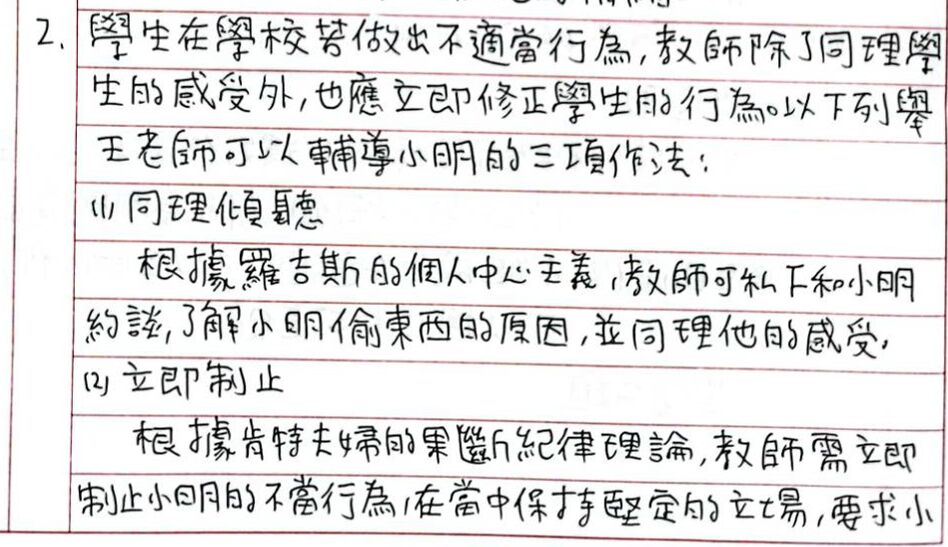 2. 學生在學校若做出不適當行為,教師除了同理學
生的感受外,也應立即修正學生的行為。以下列舉
王老師可以輔導小明的三項作法:
(1) 同理傾聽
根據羅吉斯的個人中心主義,教師可私下和小明
約談,了解小明偷東西的原因,並同理他的感受。
(2) 立即制止
根據肯特夫婦的果斷紀律理論,教師需立即
制止小明的不當行為,在當中保持堅定的立場,要求小